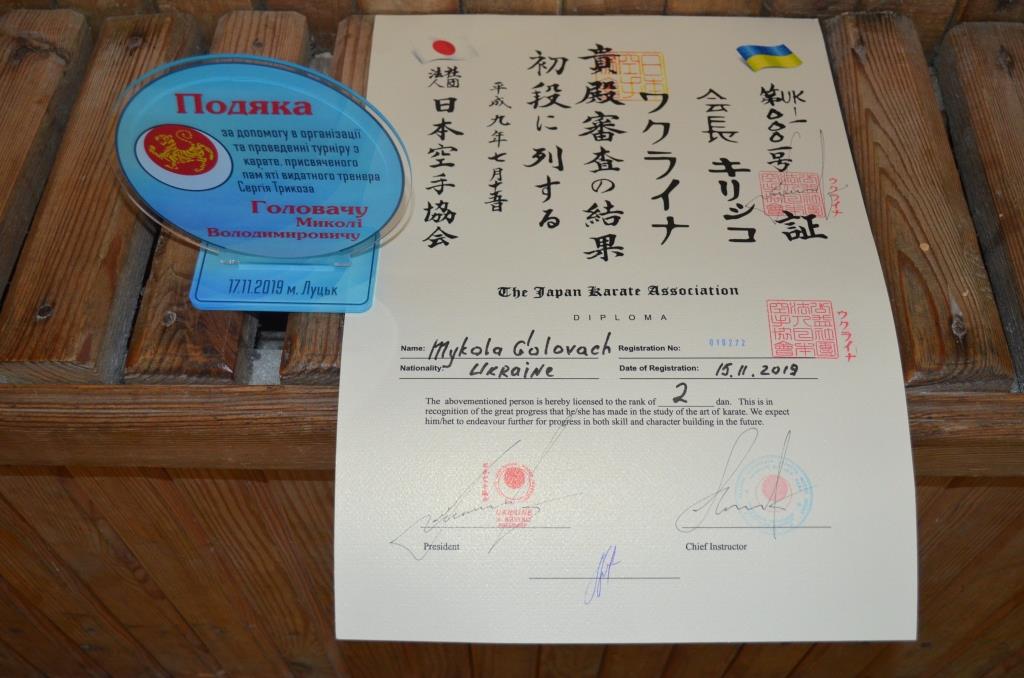 Подяка
за допомогу в організації
та проведенні турніру з
карате, присвяченого
пам яті видатного тренера
Сергія Трикоза
Головачу
Миколі
Володимировичу
17.11.2019 м. Луцьк
第UK-1
0001号
証
会長 キリシコ
ワクライナ
貴殿審査の結果
初段に列する
平成九年七月十五日
社団
法人
日本空手協会
The Japan Karate Association
DIPLOMA
Name: Mykola Golovach Registration No: 010272
Nationality: Ukraine Date of Registration: 15.11.2019
The abovementioned person is hereby licensed to the rank of 2 dan. This is in
recognition of the great progress that he/she has made in the study of the art of karate. We expect
him/het to endeavour further for progress in both skill and character building in the future.
President
Chief Instructor
ウクライナ
ウクライナ
UKRAINE